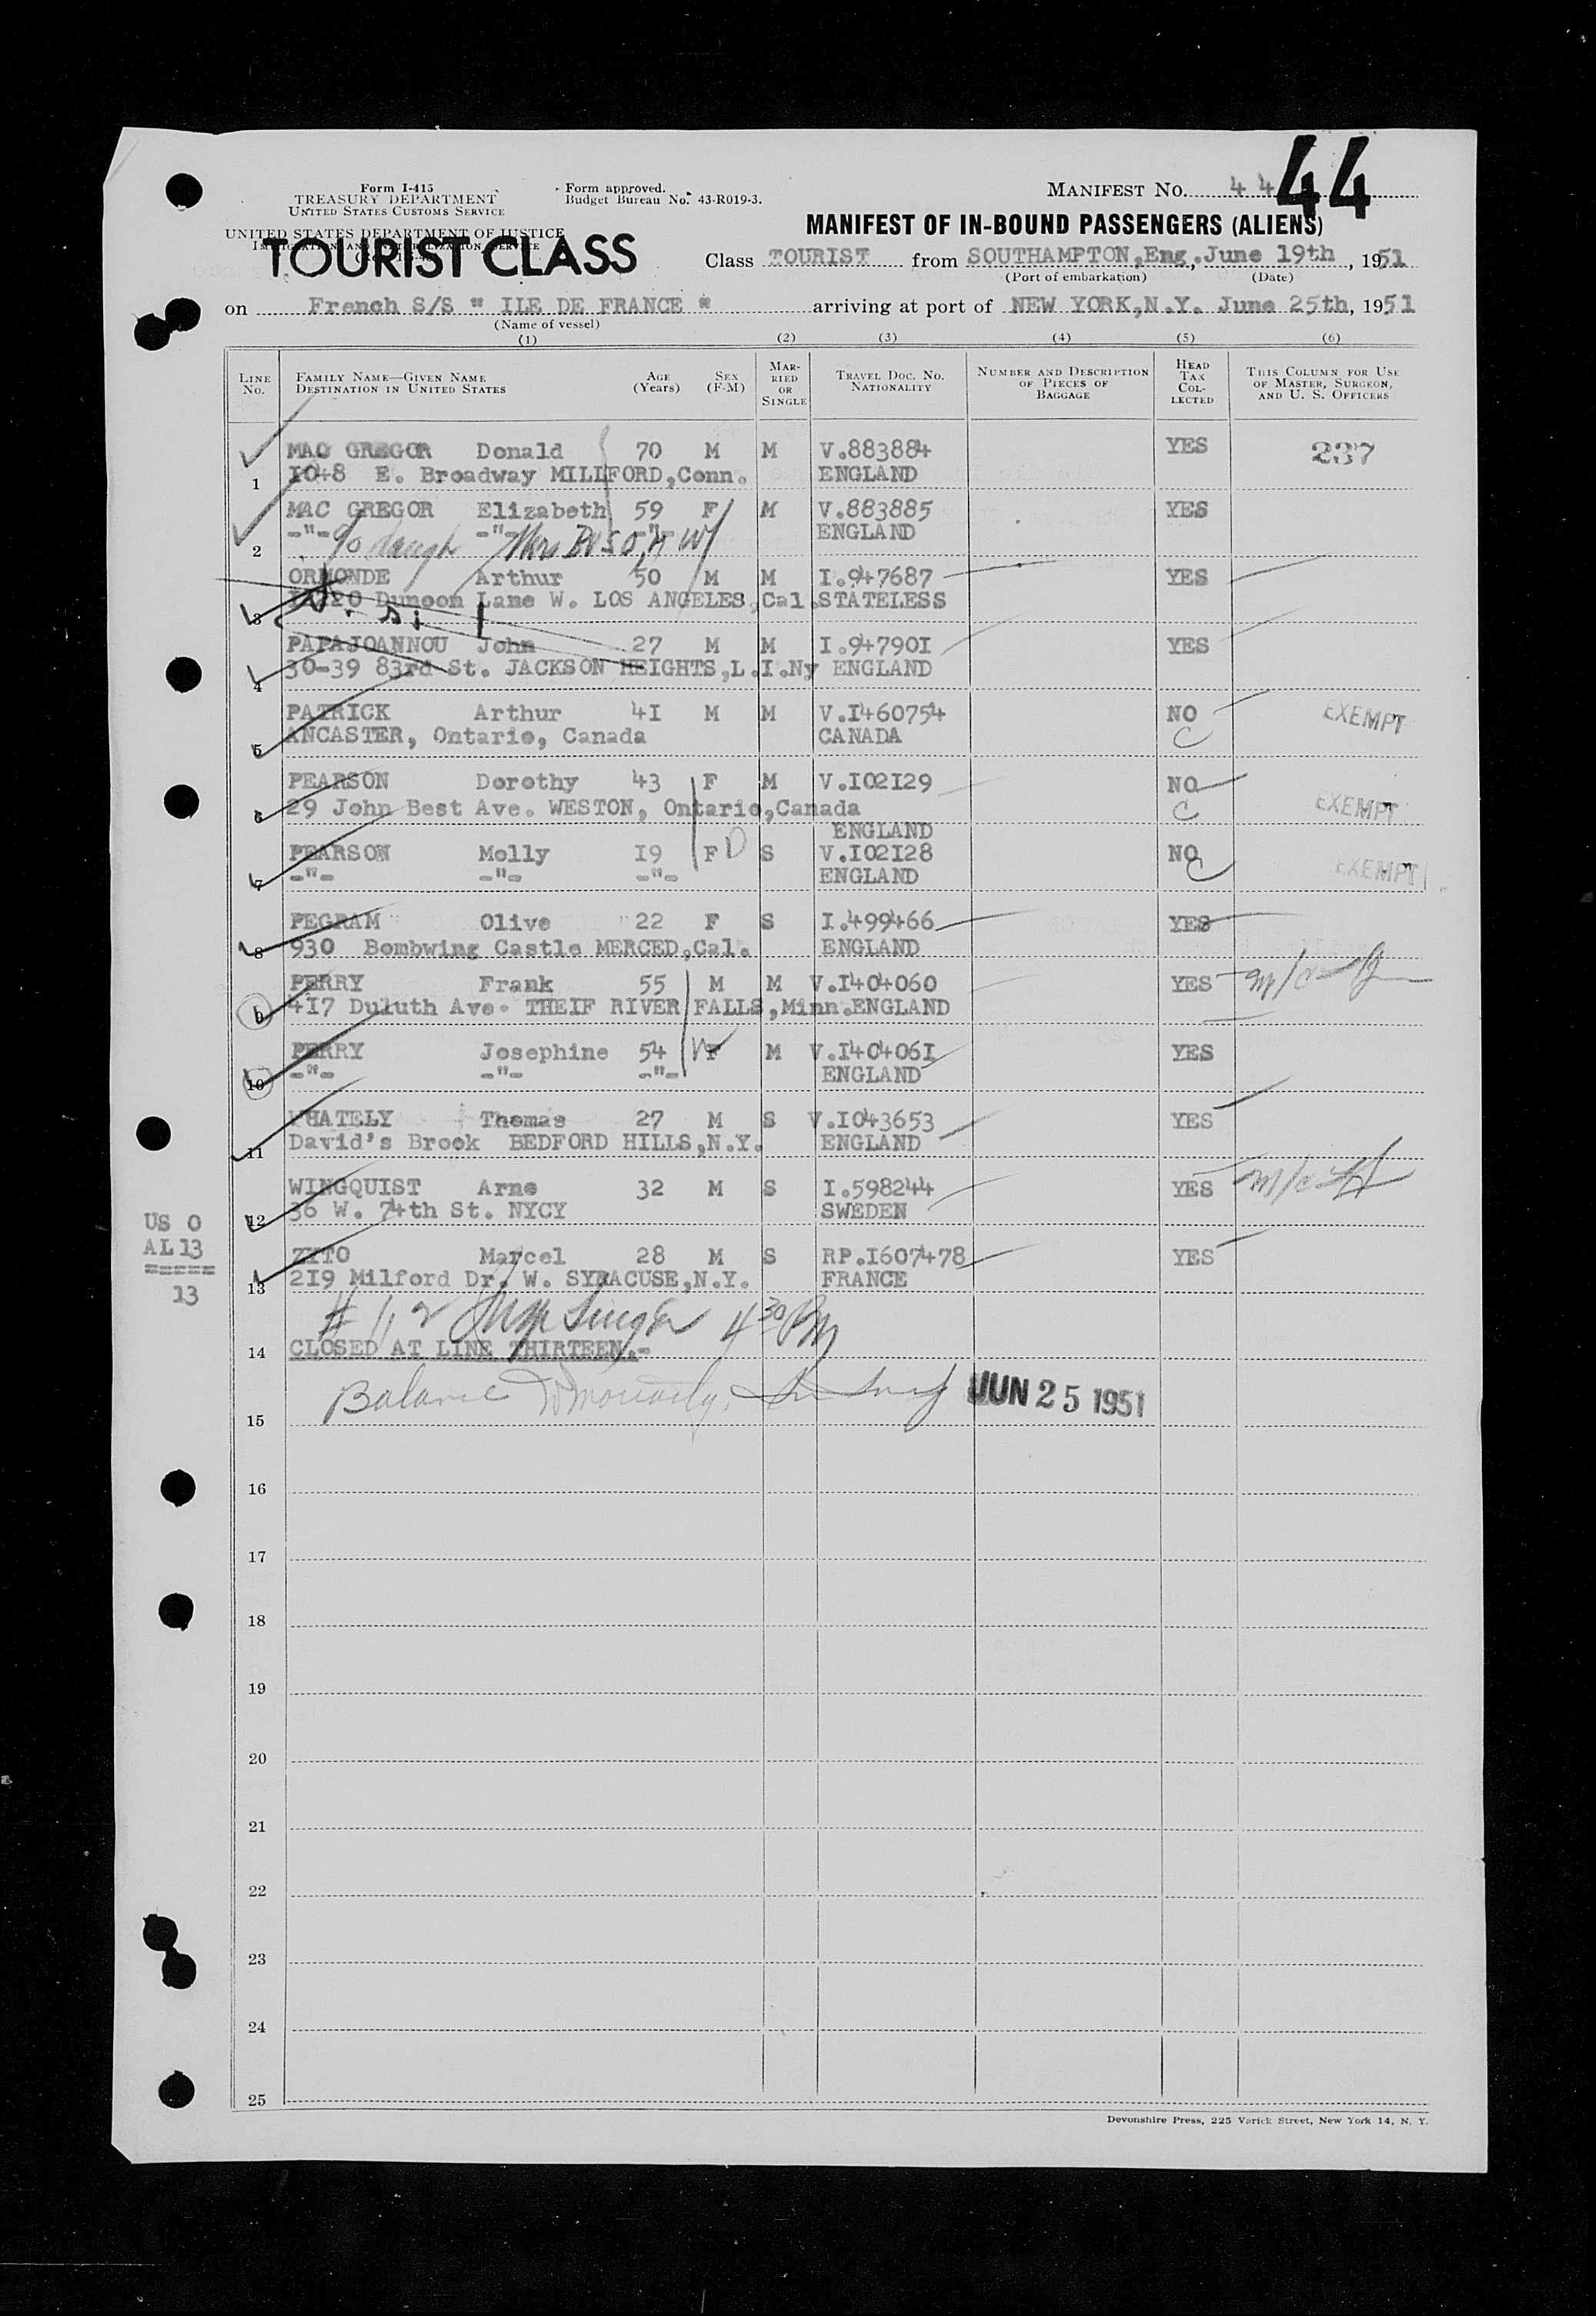 Form I-415
TREASURY DEPARTMENT
UNITED STATES CUSTOMS SERVICE
UNITED STATES DEPARTMENT OF JUSTICE
Form approved.
Budget Bureau No. 43-R019-3.
MANIFEST No. 44
44
TOURIST CLASS
MANIFEST OF IN-BOUND PASSENGERS (ALIENS)
Class TOURIST from SOUTHAMPTON,Eng.,June 19th, 1951
(Port of embarkation) (Date)
on French S/S " ILE DE FRANCE " arriving at port of NEW YORK,N.Y. June 25th, 1951
(Name of vessel)
(1) (2) (3) (4) (5) (6)
LINE No. FAMILY NAME—GIVEN NAME DESTINATION IN UNITED STATES AGE (Years) SEX (F-M) MARRIED OR SINGLE TRAVEL DOC. No. NATIONALITY NUMBER AND DESCRIPTION OF PIECES OF BAGGAGE HEAD TAX COLLECTED THIS COLUMN FOR USE OF MASTER, SURGEON, AND U. S. OFFICERS
MAC GREGOR Donald 70 M M V.883884 YES 237
1 1048 E. Broadway MILLFORD,Conn. ENGLAND
MAC GREGOR Elizabeth 59 F M V.883885 YES
2 -"- -"- -"- ENGLAND
c/o daugh Mrs
ORMONDE Arthur 50 M M I.947687 YES
3 Dunoon Lane W. LOS ANGELES,Cal.STATELESS
PAPAJOANNOU John 27 M M I.947901 YES
4 30-39 83rd St. JACKSON HEIGHTS,L.I.Ny ENGLAND
PATRICK Arthur 41 M M V.I460754 NO EXEMPT
5 ANCASTER, Ontario, Canada CANADA C
PEARSON Dorothy 43 F M V.I02129 NO EXEMPT
6 29 John Best Ave. WESTON, Ontario,Canada C
ENGLAND
PEARSON Molly 19 F D S V.I02128 NO EXEMPT
7 -"- -"- -"- ENGLAND C
PEGRAM Olive 22 F S I.499466 YES
8 930 Bombwing Castle MERCED,Cal. ENGLAND
PERRY Frank 55 M M V.I404060 YES
9 417 Duluth Ave. THEIF RIVER FALLS,Minn.ENGLAND
PERRY Josephine 54 F M V.I404061 YES
10 -"- -"- -"- ENGLAND
WHATELY Thomas 27 M S V.I043653 YES
11 David's Brook BEDFORD HILLS,N.Y. ENGLAND
WINGQUIST Arne 32 M S I.598244 YES
12 36 W. 74th St. NYCY SWEDEN
US 0
AL 13
=====
13
ZYTO Marcel 28 M S RP.I607478 YES
13 219 Milford Dr. W. SYRACUSE,N.Y. FRANCE
# 1, 2 4 30 PM
14 CLOSED AT LINE THIRTEEN.-
Balance
JUN 25 1951
15
16
17
18
19
20
21
22
23
24
25
Devonshire Press, 225 Varick Street, New York 14, N. Y.